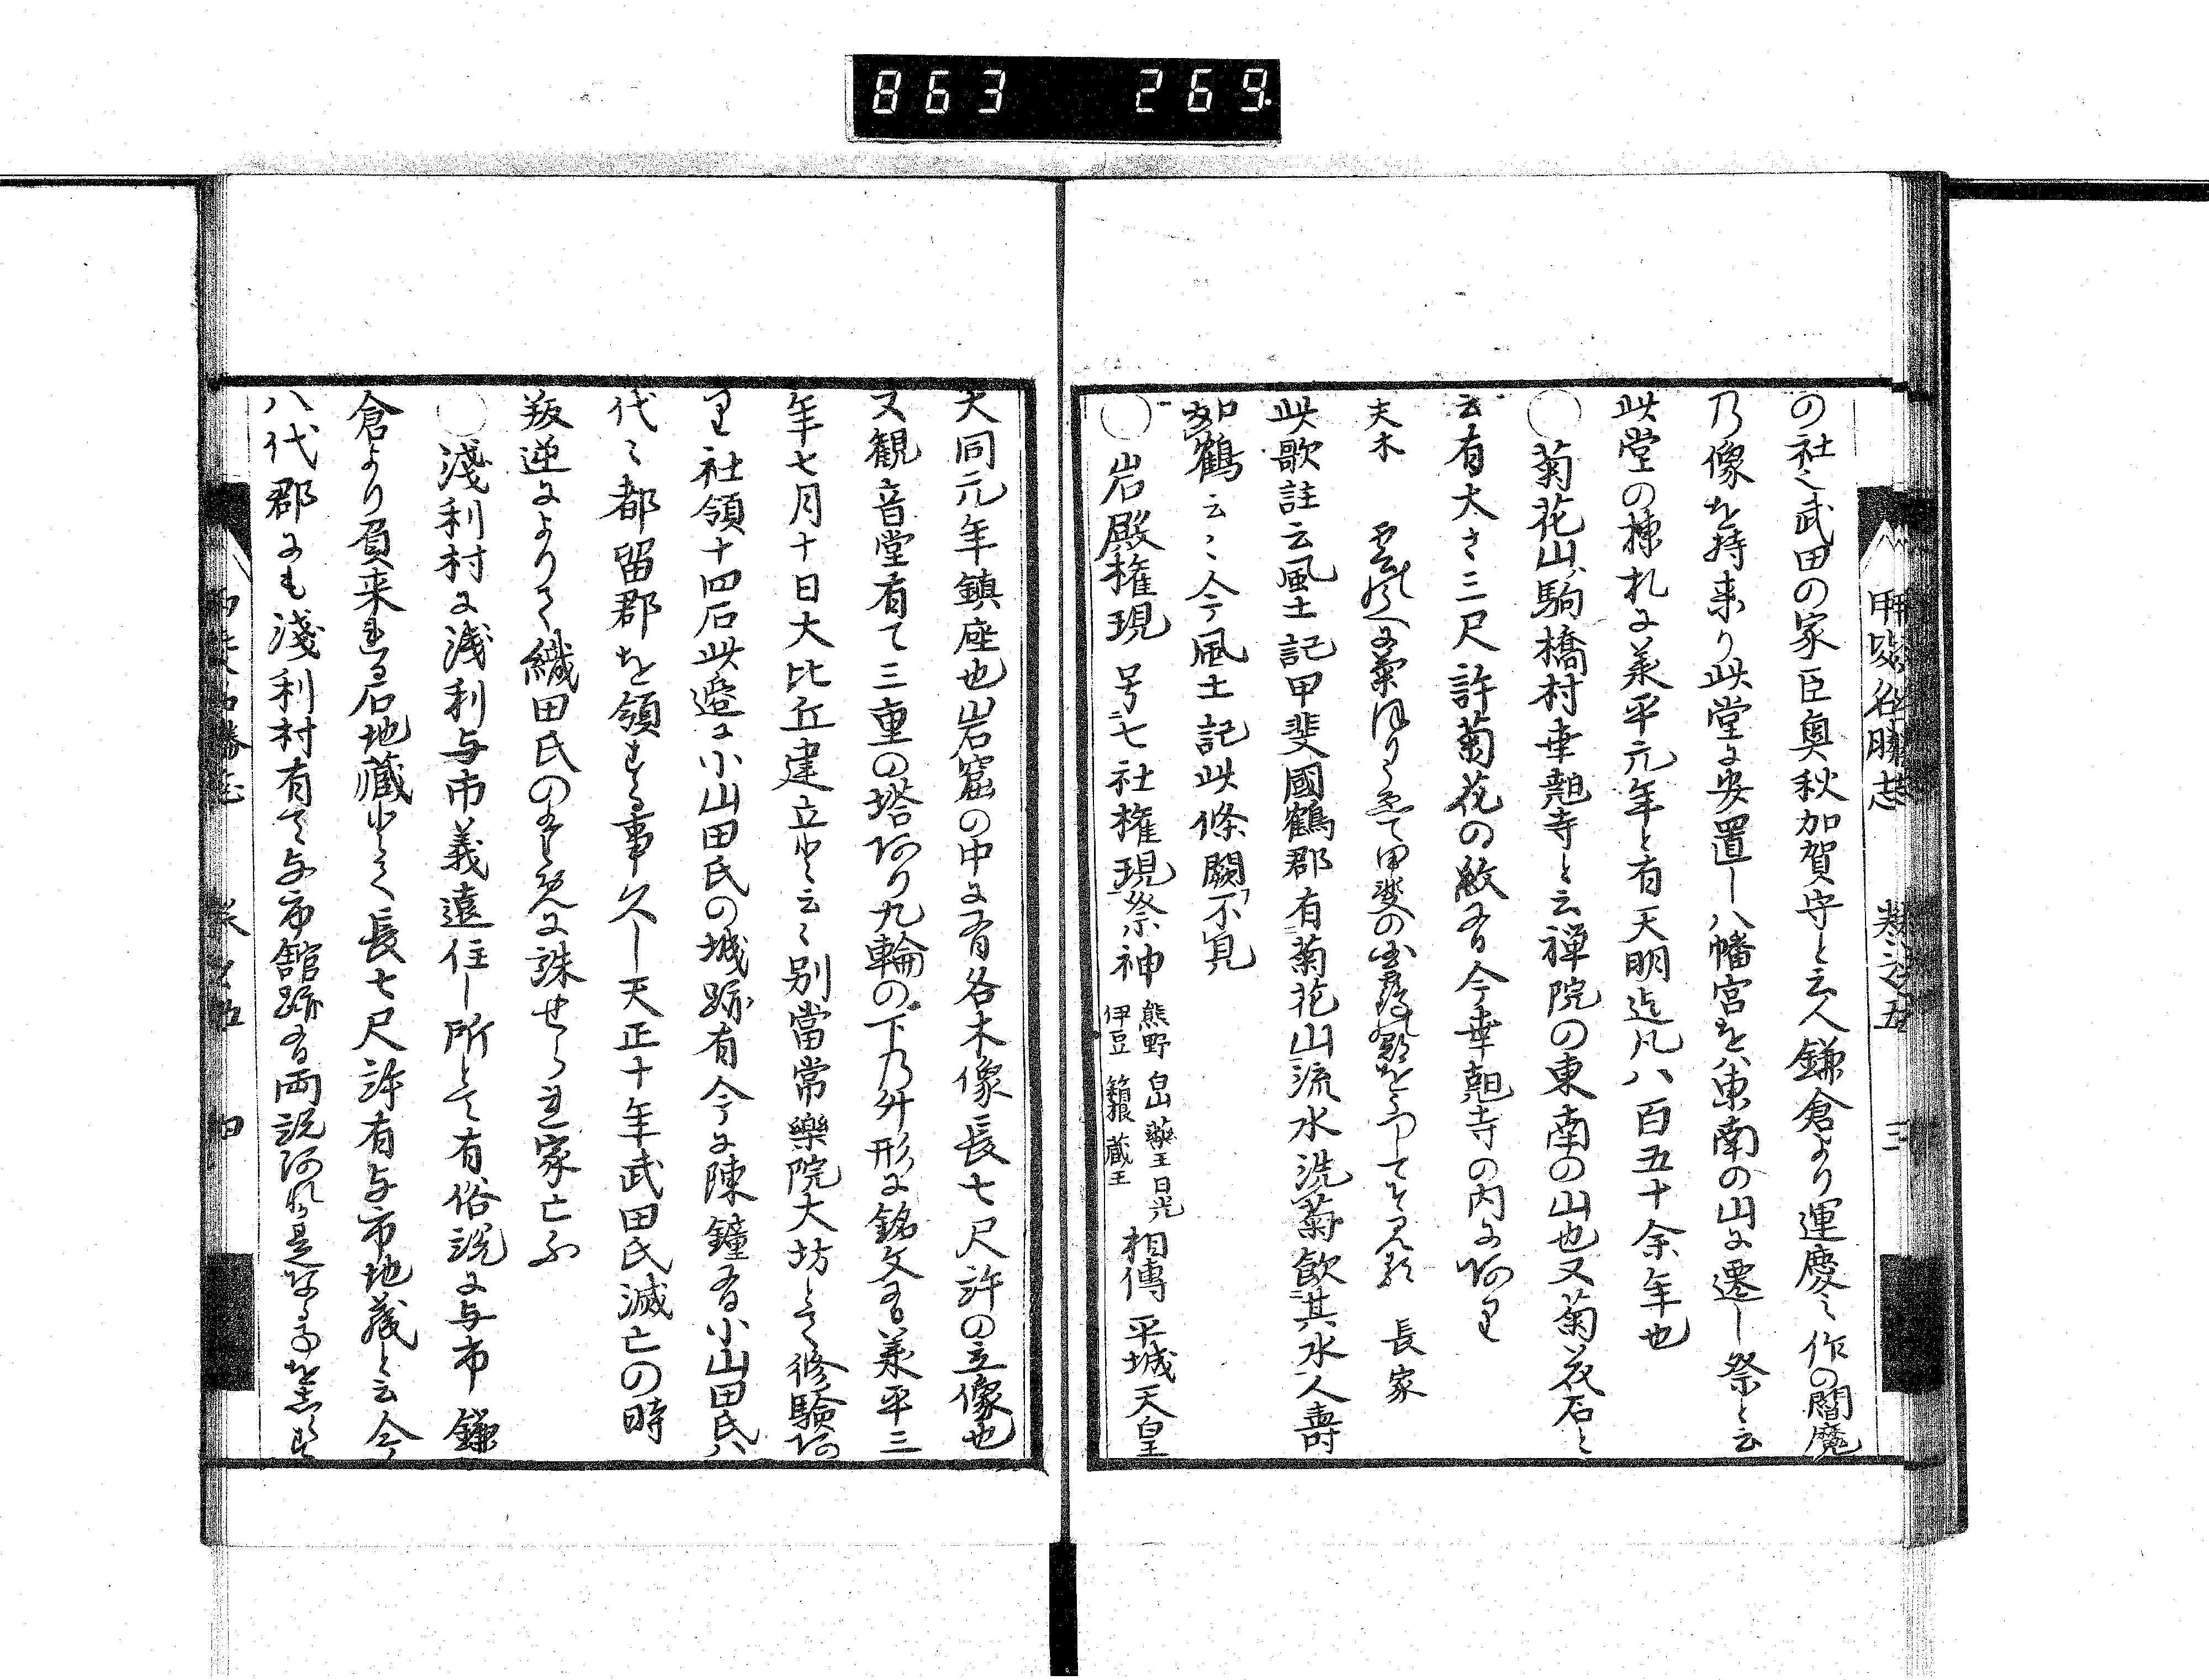 863 269
甲陽名勝志 巻之五 三
の社〻武田の家臣奥秋加賀守と云人鎌倉より運慶之作の閻魔
乃像を持来り此堂に安置し八幡宮をハ東南の山に遷し祭と云
此堂の棟札に承平元年と有天明迄凡八百五十余年也
○菊花山 駒橋村幸𦒳寺と云禅院の東南の山也又菊花石と
云有大さ三尺許菊花の紋有今幸𦒳寺の内にあり
夫木 雲の上に菊ほりうゑて甲斐の国鶴の郡をうつしてそ見る 長家
此歌註云風土記甲斐國鶴郡有菊花山流水洗菊飲其水人壽
如鶴云〻今風土記此條闕不見
○岩殿権現 号七社権現祭神 熊野 白山 藥王 日光 伊豆 箱根 蔵王 相傳平城天皇
大同元年鎮座也岩窟の中に有各木像長七尺許の立像也
又観音堂有て三重の塔あり九輪の下乃舛形に銘文有承平三
年七月十日大比丘建立也と云〻別當常樂院大坊とて修驗あ
り社領十四石此邉に小山田氏の城跡有今に陳鐘有小山田氏ハ
代〻都留郡を領する事久し天正十年武田氏滅亡の時
叛逆によりて織田氏のために誅せられ家亡ふ
○淺利村に淺利与市義遠住し所とて有俗説に与市鎌
倉より負来れる石地蔵也とて長七尺許有与市地蔵と云今
八代郡にも淺利村有て与市舘跡有両説あれハ是なる事を志らす